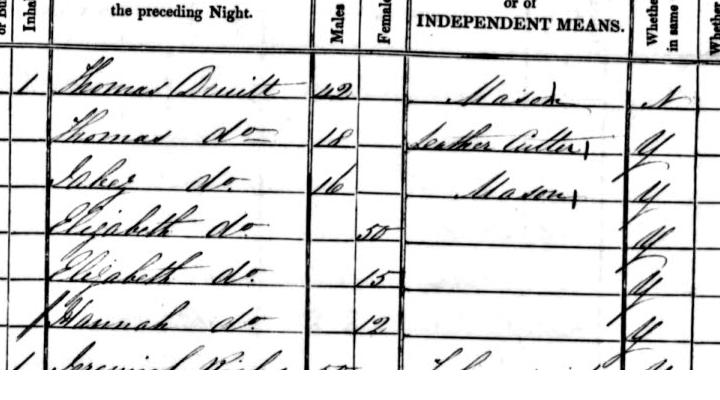 or Bu Inhal the preceding Night. Males Female or of INDEPENDENT MEANS. Whethe in same Whether
1 Thomas 42 Mason N
Thomas do 18 Leather Cutter Y
Jabez do. 16 Mason Y
Elizabeth do. 50 Y
Elizabeth do. 15 Y
Hannah do. 12 Y
1 Jeremiah